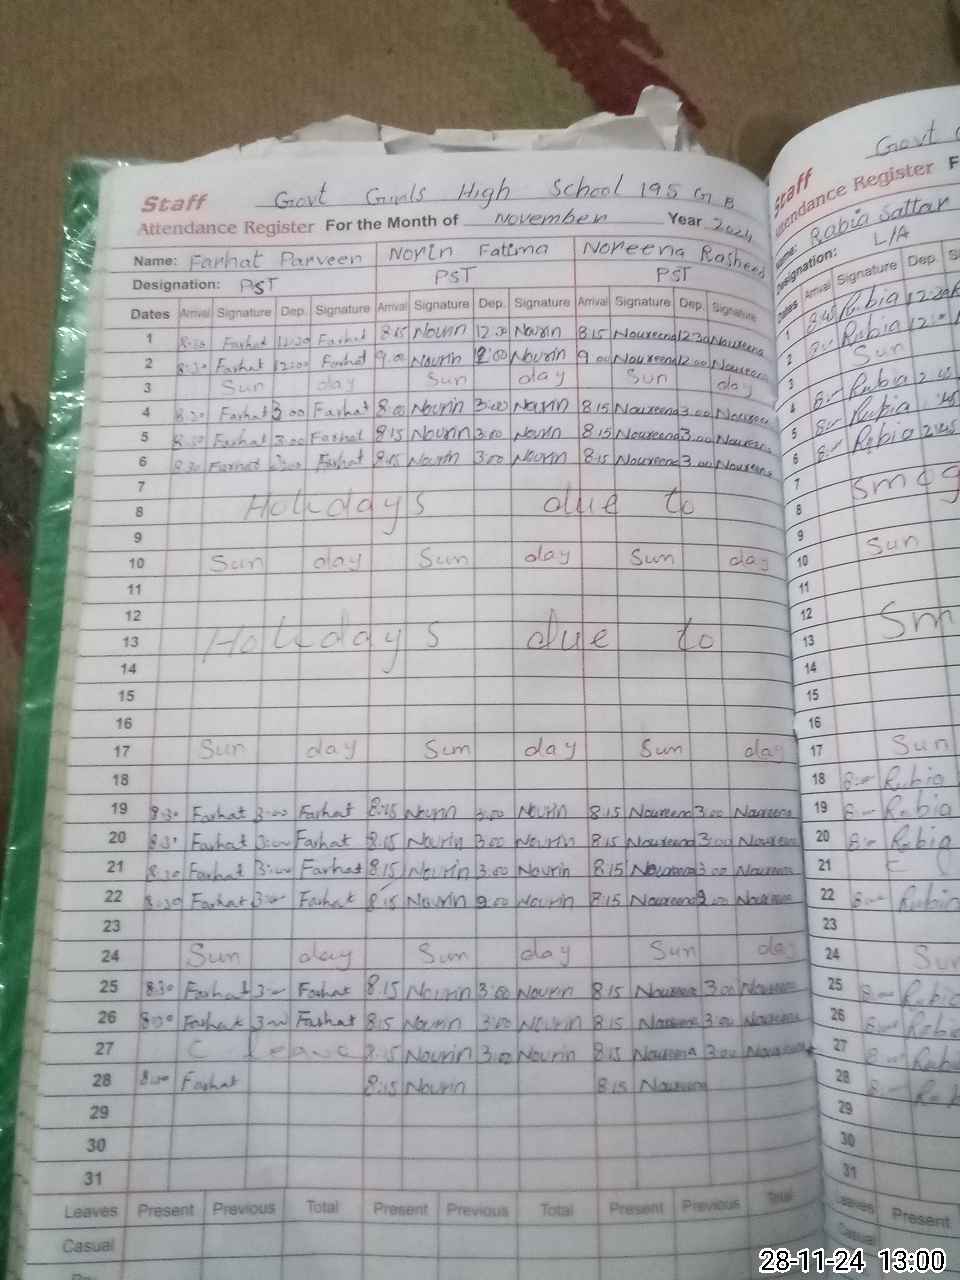 Staff Govt Girls High School 195 G B
Attendance Register For the Month of November Year 2024
Name: Farhat Parveen Norin Fatima Noreena Rasheed
Designation: PST PST PST
Dates Arrival Signature Dep. Signature Arrival Signature Dep. Signature Arrival Signature Dep. Signature
1 8:30 Farhat 12:30 Farhat 8:15 Nourin 12:30 Nourin 8:15 Noureena 12:30 Noureena
2 8:30 Farhat 12:00 Farhat 9:00 Nourin 12:00 Nourin 9:00 Noureena 12:00 Noureena
3 Sun day Sun day Sun day
4 8:30 Farhat 3:00 Farhat 8:00 Nourin 3:00 Nourin 8:15 Noureena 3:00 Noureena
5 8:30 Farhat 3:00 Farhat 8:15 Nourin 3:00 Nourin 8:15 Noureena 3:00 Noureena
6 8:30 Farhat 3:00 Farhat 8:15 Nourin 3:00 Nourin 8:15 Noureena 3:00 Noureena
7
8 Holidays due to
9
10 Sun day Sun day Sun day
11
12
13 Holidays due to
14
15
16
17 Sun day Sun day Sun day
18
19 8:30 Farhat 3:00 Farhat 8:15 Nourin 3:00 Nourin 8:15 Noureena 3:00 Noureena
20 8:30 Farhat 3:00 Farhat 8:15 Nourin 3:00 Nourin 8:15 Noureena 3:00 Noureena
21 8:30 Farhat 3:00 Farhat 8:15 Nourin 3:00 Nourin 8:15 Noureena 3:00 Noureena
22 8:30 Farhat 3:00 Farhat 8:15 Nourin Nourin 8:15 Noureena Noureena
23
24 Sun day Sun day Sun day
25 8:30 Farhat 3:00 Farhat 8:15 Nourin 3:00 Nourin 8:15 Noureena 3:00 Noureena
26 8:30 Farhat 3:00 Farhat 8:15 Nourin 3:00 Nourin 8:15 Noureena 3:00 Noureena
27 C leave 8:15 Nourin 3:00 Nourin 8:15 Noureena 3:00 Noureena
28 Farhat 8:15 Nourin 8:15 Noureena
29
30
31
Leaves Present Previous Total Present Previous Total Present Previous Total
Casual
Govt
Staff
Attendance Register F
Name: Rabia Sattar
Designation: L/A
Dates Arrival Signature Dep.
1 8:45 Rabia 12:30
2 Rabia 12:00
3 Sun
4 Rabia 2:45
5 Rabia 2:45
6 Rabia 2:45
7
8 Smog
9
10 Sun
11
12
13 Sm
14
15
16
17 Sun
18 Rabia
19 Rabia
20 Rabia
21 C
22 Rabia
23
24 Sun
25 Rabia
26 Rabia
27 Rabia
28
29
30
31
Leaves Present
Casual
28-11-24 13:00